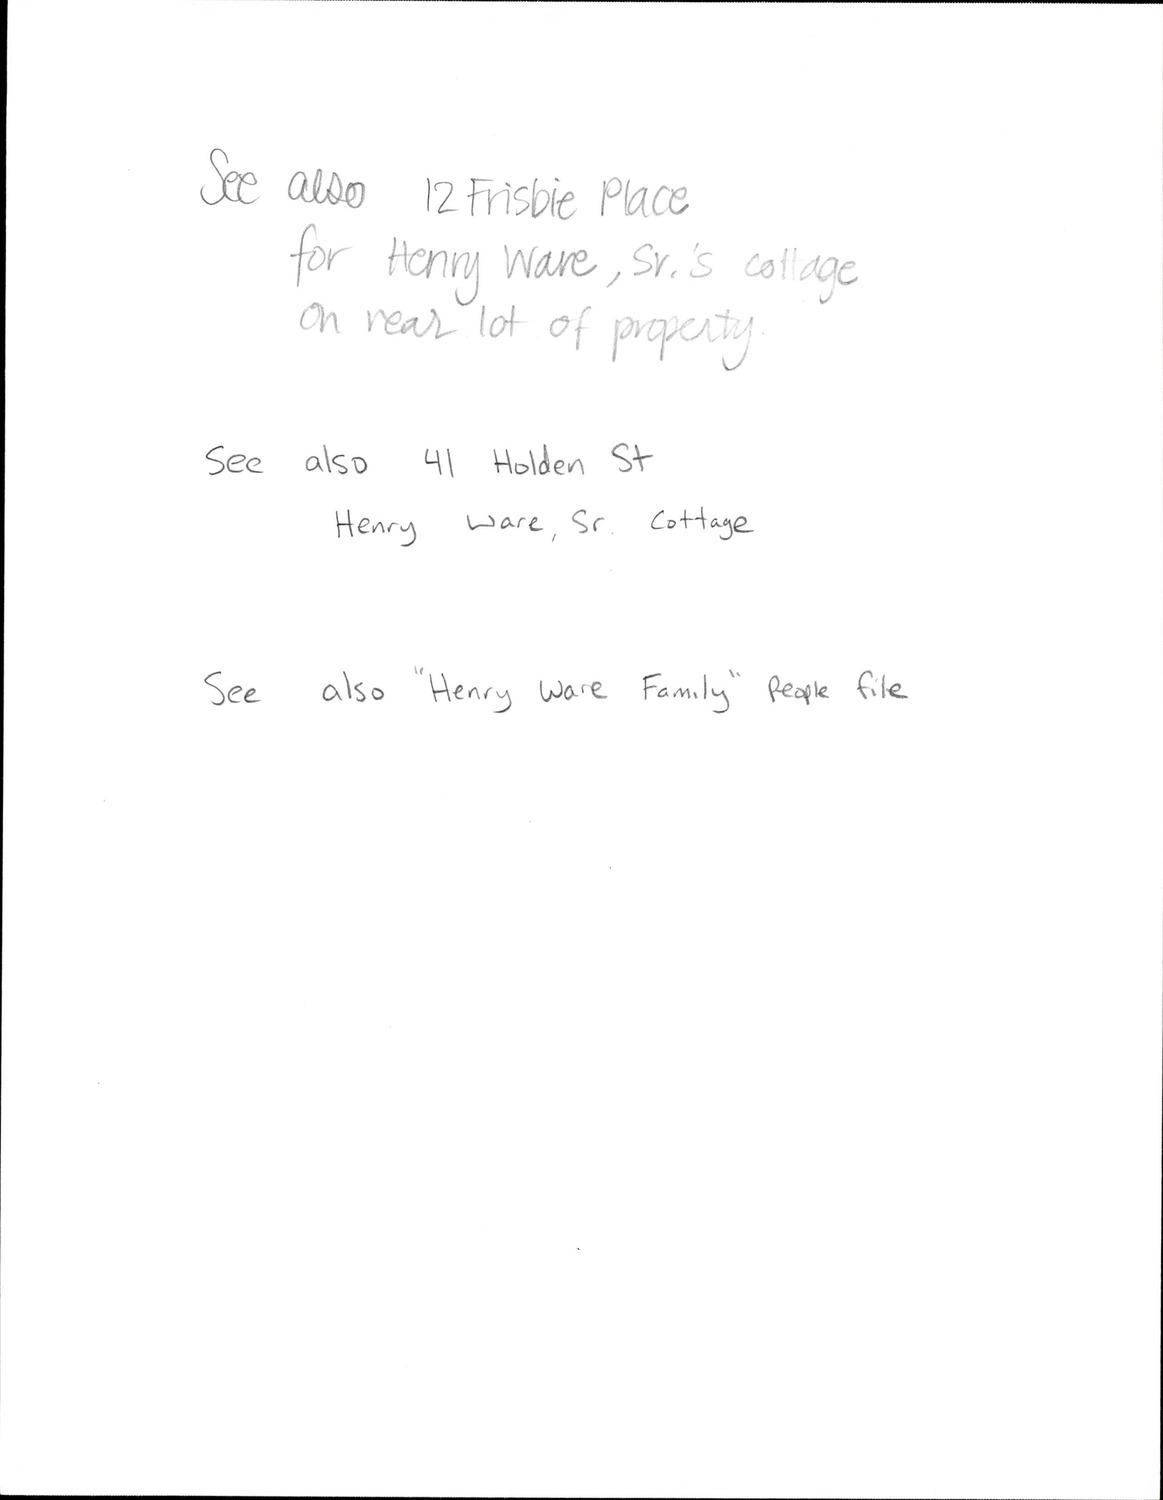 See also 12 Frisbie Place
for Henry Ware, Sr.'s cottage
on rear lot of property.
See also 41 Holden St
Henry Ware, Sr. Cottage
See also "Henry Ware Family" People file